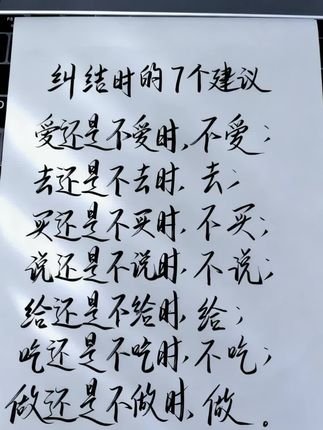 纠结时的7个建议
爱还是不爱时,不爱;
去还是不去时,去;
买还是不买时,不买;
说还是不说时,不说;
给还是不给时,给;
吃还是不吃时,不吃;
做还是不做时,做。